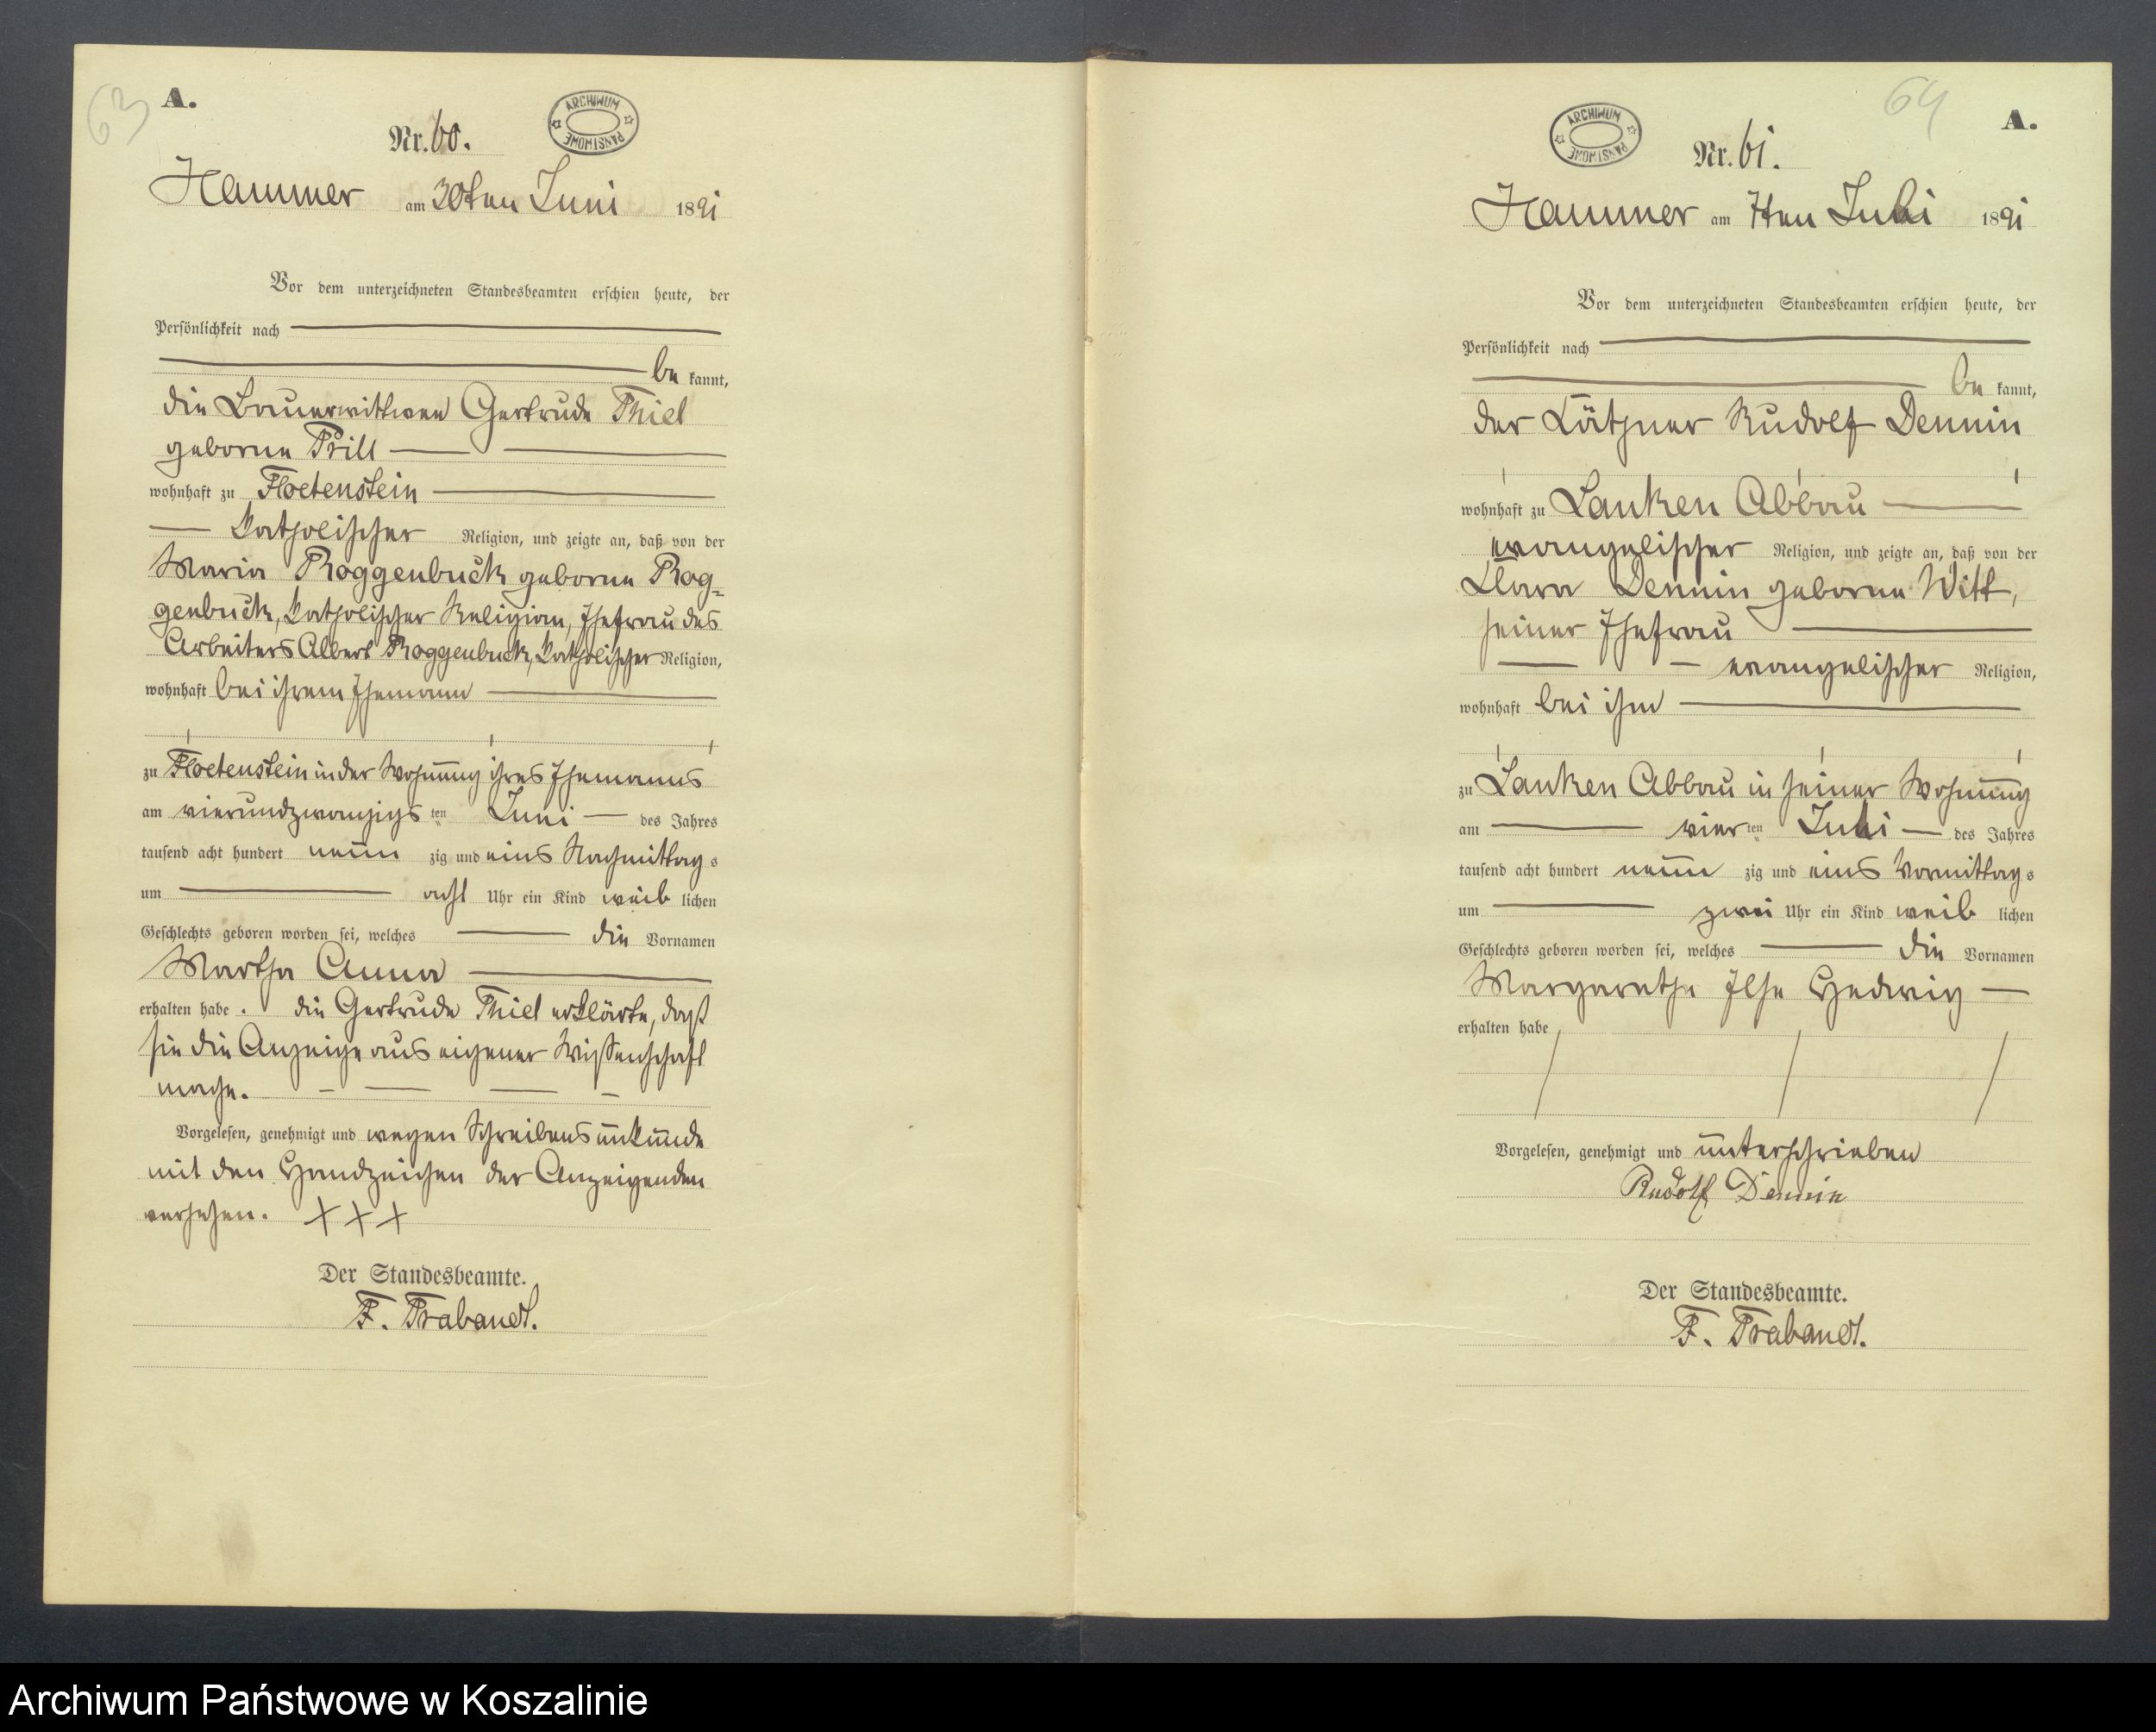 63
A.
ARCHIWUM PAŃSTWOWE
Nr. 60.
Hammer am 30ten Juni 1891
Vor dem unterzeichneten Standesbeamten erschien heute, der
Persönlichkeit nach
be kannt,
die Bauerwittwe Gertrude Thiel
geborne Prill
wohnhaft zu Floetenstein
katholischer Religion, und zeigte an, daß von der
Maria Roggenbuck geborne Rog-
genbuck, katholischer Religion, Ehefrau des
Arbeiters Albert Roggenbuck, katholischer Religion,
wohnhaft bei ihrem Ehemann
zu Floetenstein in der Wohnung ihres Ehemanns
am vierundzwanzigs ten Juni des Jahres
tausend acht hundert neun zig und eins Nachmittag s
um acht Uhr ein Kind weib lichen
Geschlechts geboren worden sei, welches die Vornamen
Martha Anna
erhalten habe. die Gertrude Thiel erklärte, daß
sie die Anzeige aus eigener Wissenschaft
mache.
Vorgelesen, genehmigt und wegen Schreibensunkunde
mit den Handzeichen der Anzeigenden
versehen. XXX
Der Standesbeamte.
F. Trabandt.
64
A.
ARCHIWUM PAŃSTWOWE
Nr. 61.
Hammer am 7ten Juli 1891
Vor dem unterzeichneten Standesbeamten erschien heute, der
Persönlichkeit nach
be kannt,
der Käthner Rudolf Dennin
wohnhaft zu Lanken Abbau
evangelischer Religion, und zeigte an, daß von der
Klara Dennin geborne Witt,
seiner Ehefrau
evangelischer Religion,
wohnhaft bei ihm
zu Lanken Abbau in seiner Wohnung
am vier ten Juli des Jahres
tausend acht hundert neun zig und eins Vormittag s
um zwei Uhr ein Kind weib lichen
Geschlechts geboren worden sei, welches die Vornamen
Margarethe Ilse Hedwig
erhalten habe
Vorgelesen, genehmigt und unterschrieben
Rudolf Dennin
Der Standesbeamte.
F. Trabandt.
Archiwum Państwowe w Koszalinie